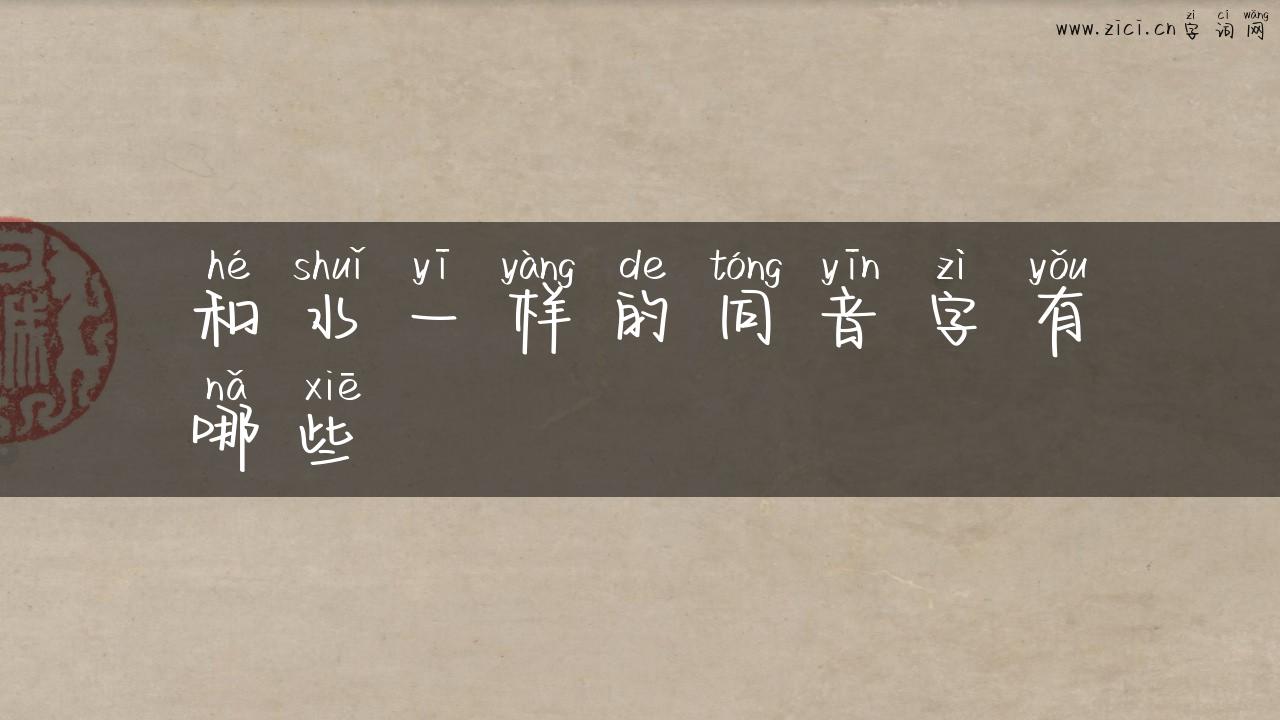 zì cí wǎng
www.zici.cn 字 词 网
hé shuǐ yī yàng de tóng yīn zì yǒu
和 水 一 样 的 同 音 字 有
nǎ xiē
哪 些